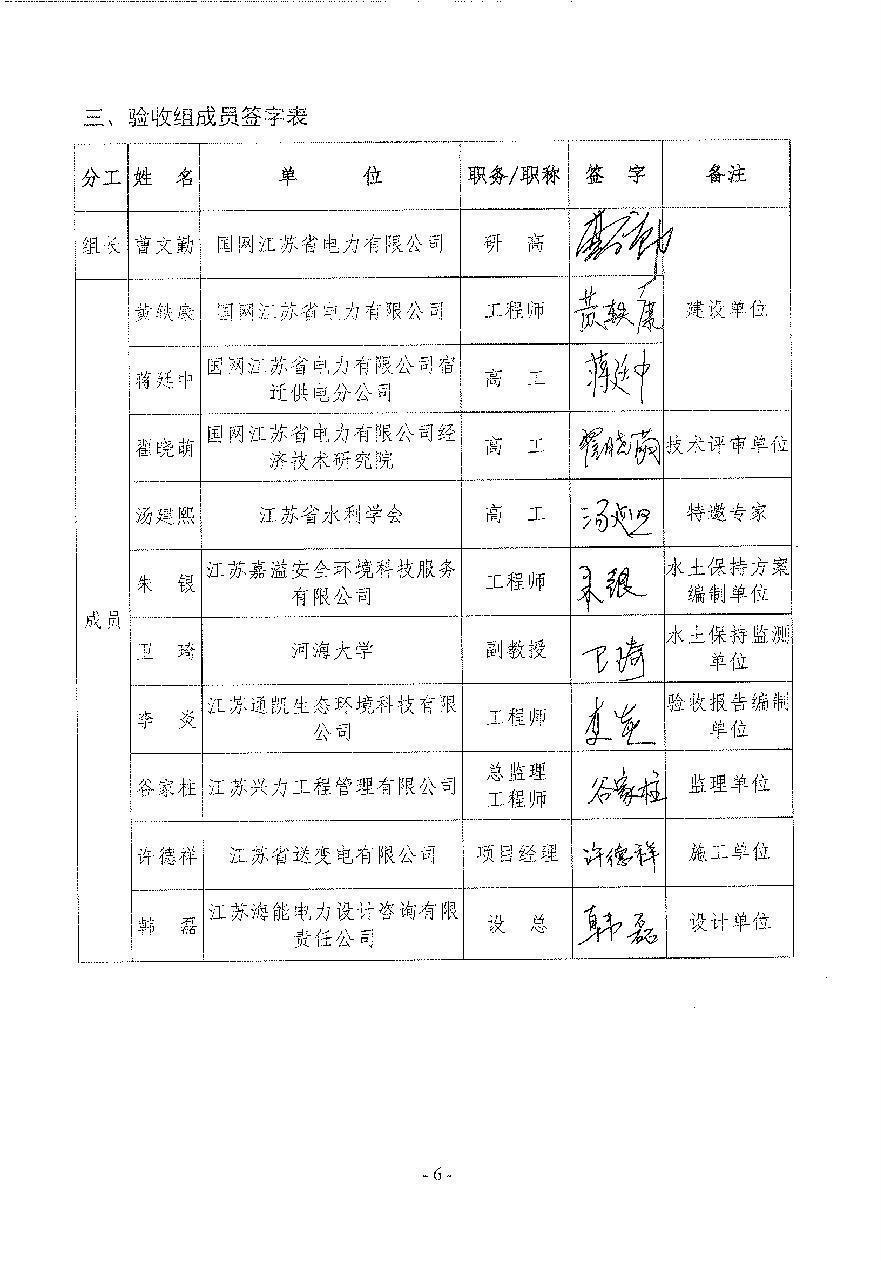 三、验收组成员签字表
分工 姓 名 单 位 职务/职称 签 字 备注
组长 曹文勤 国网江苏省电力有限公司 研 高
黄轶康 国网江苏省电力有限公司 工程师 黄轶康 建设单位
蒋廷中 国网江苏省电力有限公司宿
迁供电分公司 高 工 蒋廷中
翟晓萌 国网江苏省电力有限公司经
济技术研究院 高 工 翟晓萌 技术评审单位
汤建熙 江苏省水利学会 高 工 特邀专家
朱 银 江苏嘉溢安全环境科技服务
有限公司 工程师 朱银 水土保持方案
编制单位
成员
卫 琦 河海大学 副教授 卫琦 水土保持监测
单位
李 炎 江苏通凯生态环境科技有限
公司 工程师 验收报告编制
单位
谷家柱 江苏兴力工程管理有限公司 总监理
工程师 谷家柱 监理单位
许德祥 江苏省送变电有限公司 项目经理 许德祥 施工单位
韩 磊 江苏海能电力设计咨询有限
责任公司 设 总 韩磊 设计单位
- 6 -